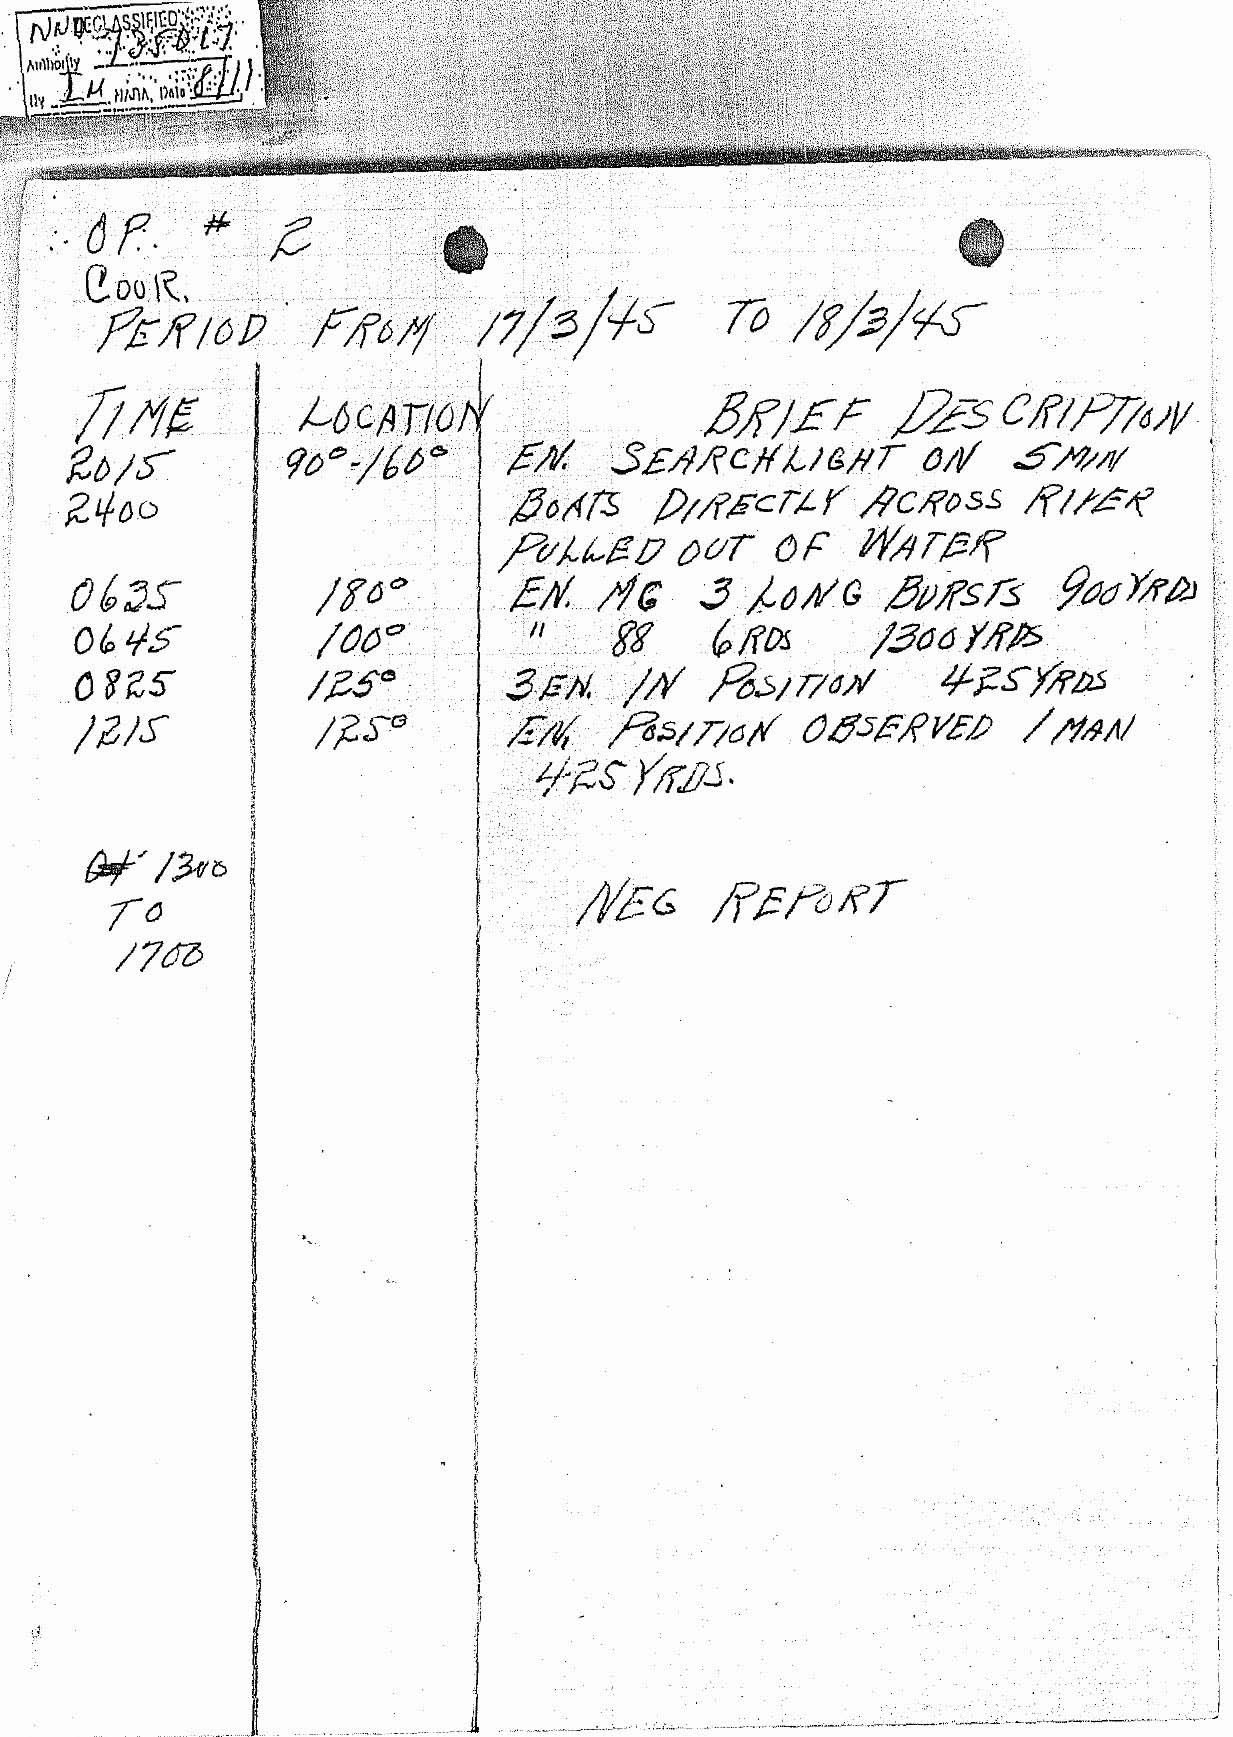 NND 735017
DECLASSIFIED
Authority
By IM NARA, Date 8/11
OP. # 2
COOR.
PERIOD FROM 17/3/45 TO 18/3/45
TIME LOCATION BRIEF DESCRIPTION
2015 90°-160° EN. SEARCHLIGHT ON 5 MIN
2400 BOATS DIRECTLY ACROSS RIVER
PULLED OUT OF WATER
0635 180° EN. MG 3 LONG BURSTS 900 YRDS
0645 100° " 88 6 RDS 1300 YRDS
0825 125° 3 EN. IN POSITION 425 YRDS
1215 125° EN. POSITION OBSERVED 1 MAN
425 YRDS.
1300
TO NEG REPORT
1700